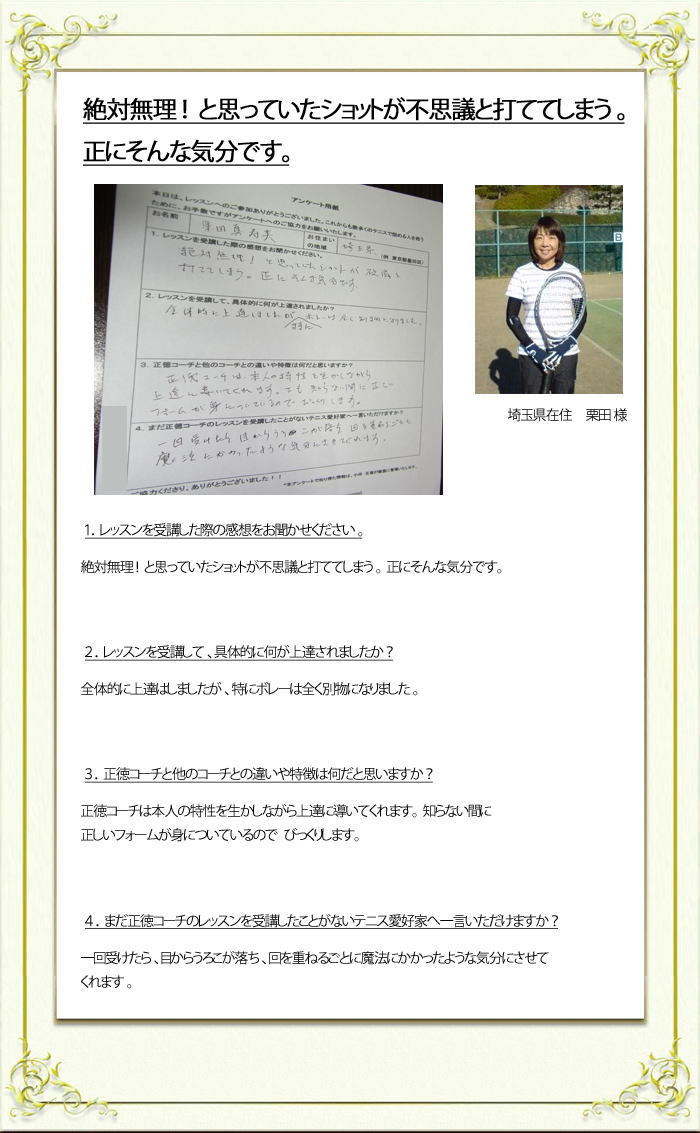 絶対無理！と思っていたショットが不思議と打ててしまう。
正にそんな気分です。
アンケート用紙
本日は、レッスンへのご参加ありがとうございました。これからも数多くのテニスで悩める人を救う
ために、お手数ですがアンケートへのご協力をお願いいたします。
お名前
お住まい
の地域
埼玉県
(例 東京都墨田区)
1. レッスンを受講した際の感想をお聞かせください。
絶対無理！と思っていたショットが不思議と
打ててしまう。正にそんな気分です。
2. レッスンを受講して、具体的に何が上達されましたか？
全体的に上達はしましたが 特に ボレーは全く別物になりました。
3. 正徳コーチと他のコーチとの違いや特徴は何だと思いますか？
正徳コーチは本人の特性を生かしながら
上達に導いてくれます。 知らない間に正しい
フォームが身についているのでびっくりします。
4. まだ正徳コーチのレッスンを受講したことがないテニス愛好家へ一言いただけますか？
一回受けたら、目からうろこが落ち、回を重ねるごとに
魔法にかかったような気分にさせてくれます。
ご協力くださり、ありがとうございました！！
B
埼玉県在住 栗田様
1. レッスンを受講した際の感想をお聞かせください。
絶対無理！と思っていたショットが不思議と打ててしまう。正にそんな気分です。
2. レッスンを受講して、具体的に何が上達されましたか？
全体的に上達はしましたが、特にボレーは全く別物になりました。
3. 正徳コーチと他のコーチとの違いや特徴は何だと思いますか？
正徳コーチは本人の特性を生かしながら上達に導いてくれます。知らない間に
正しいフォームが身についているので びっくりします。
4. まだ正徳コーチのレッスンを受講したことがないテニス愛好家へ一言いただけますか？
一回受けたら、目からうろこが落ち、回を重ねるごとに魔法にかかったような気分にさせて
くれます。